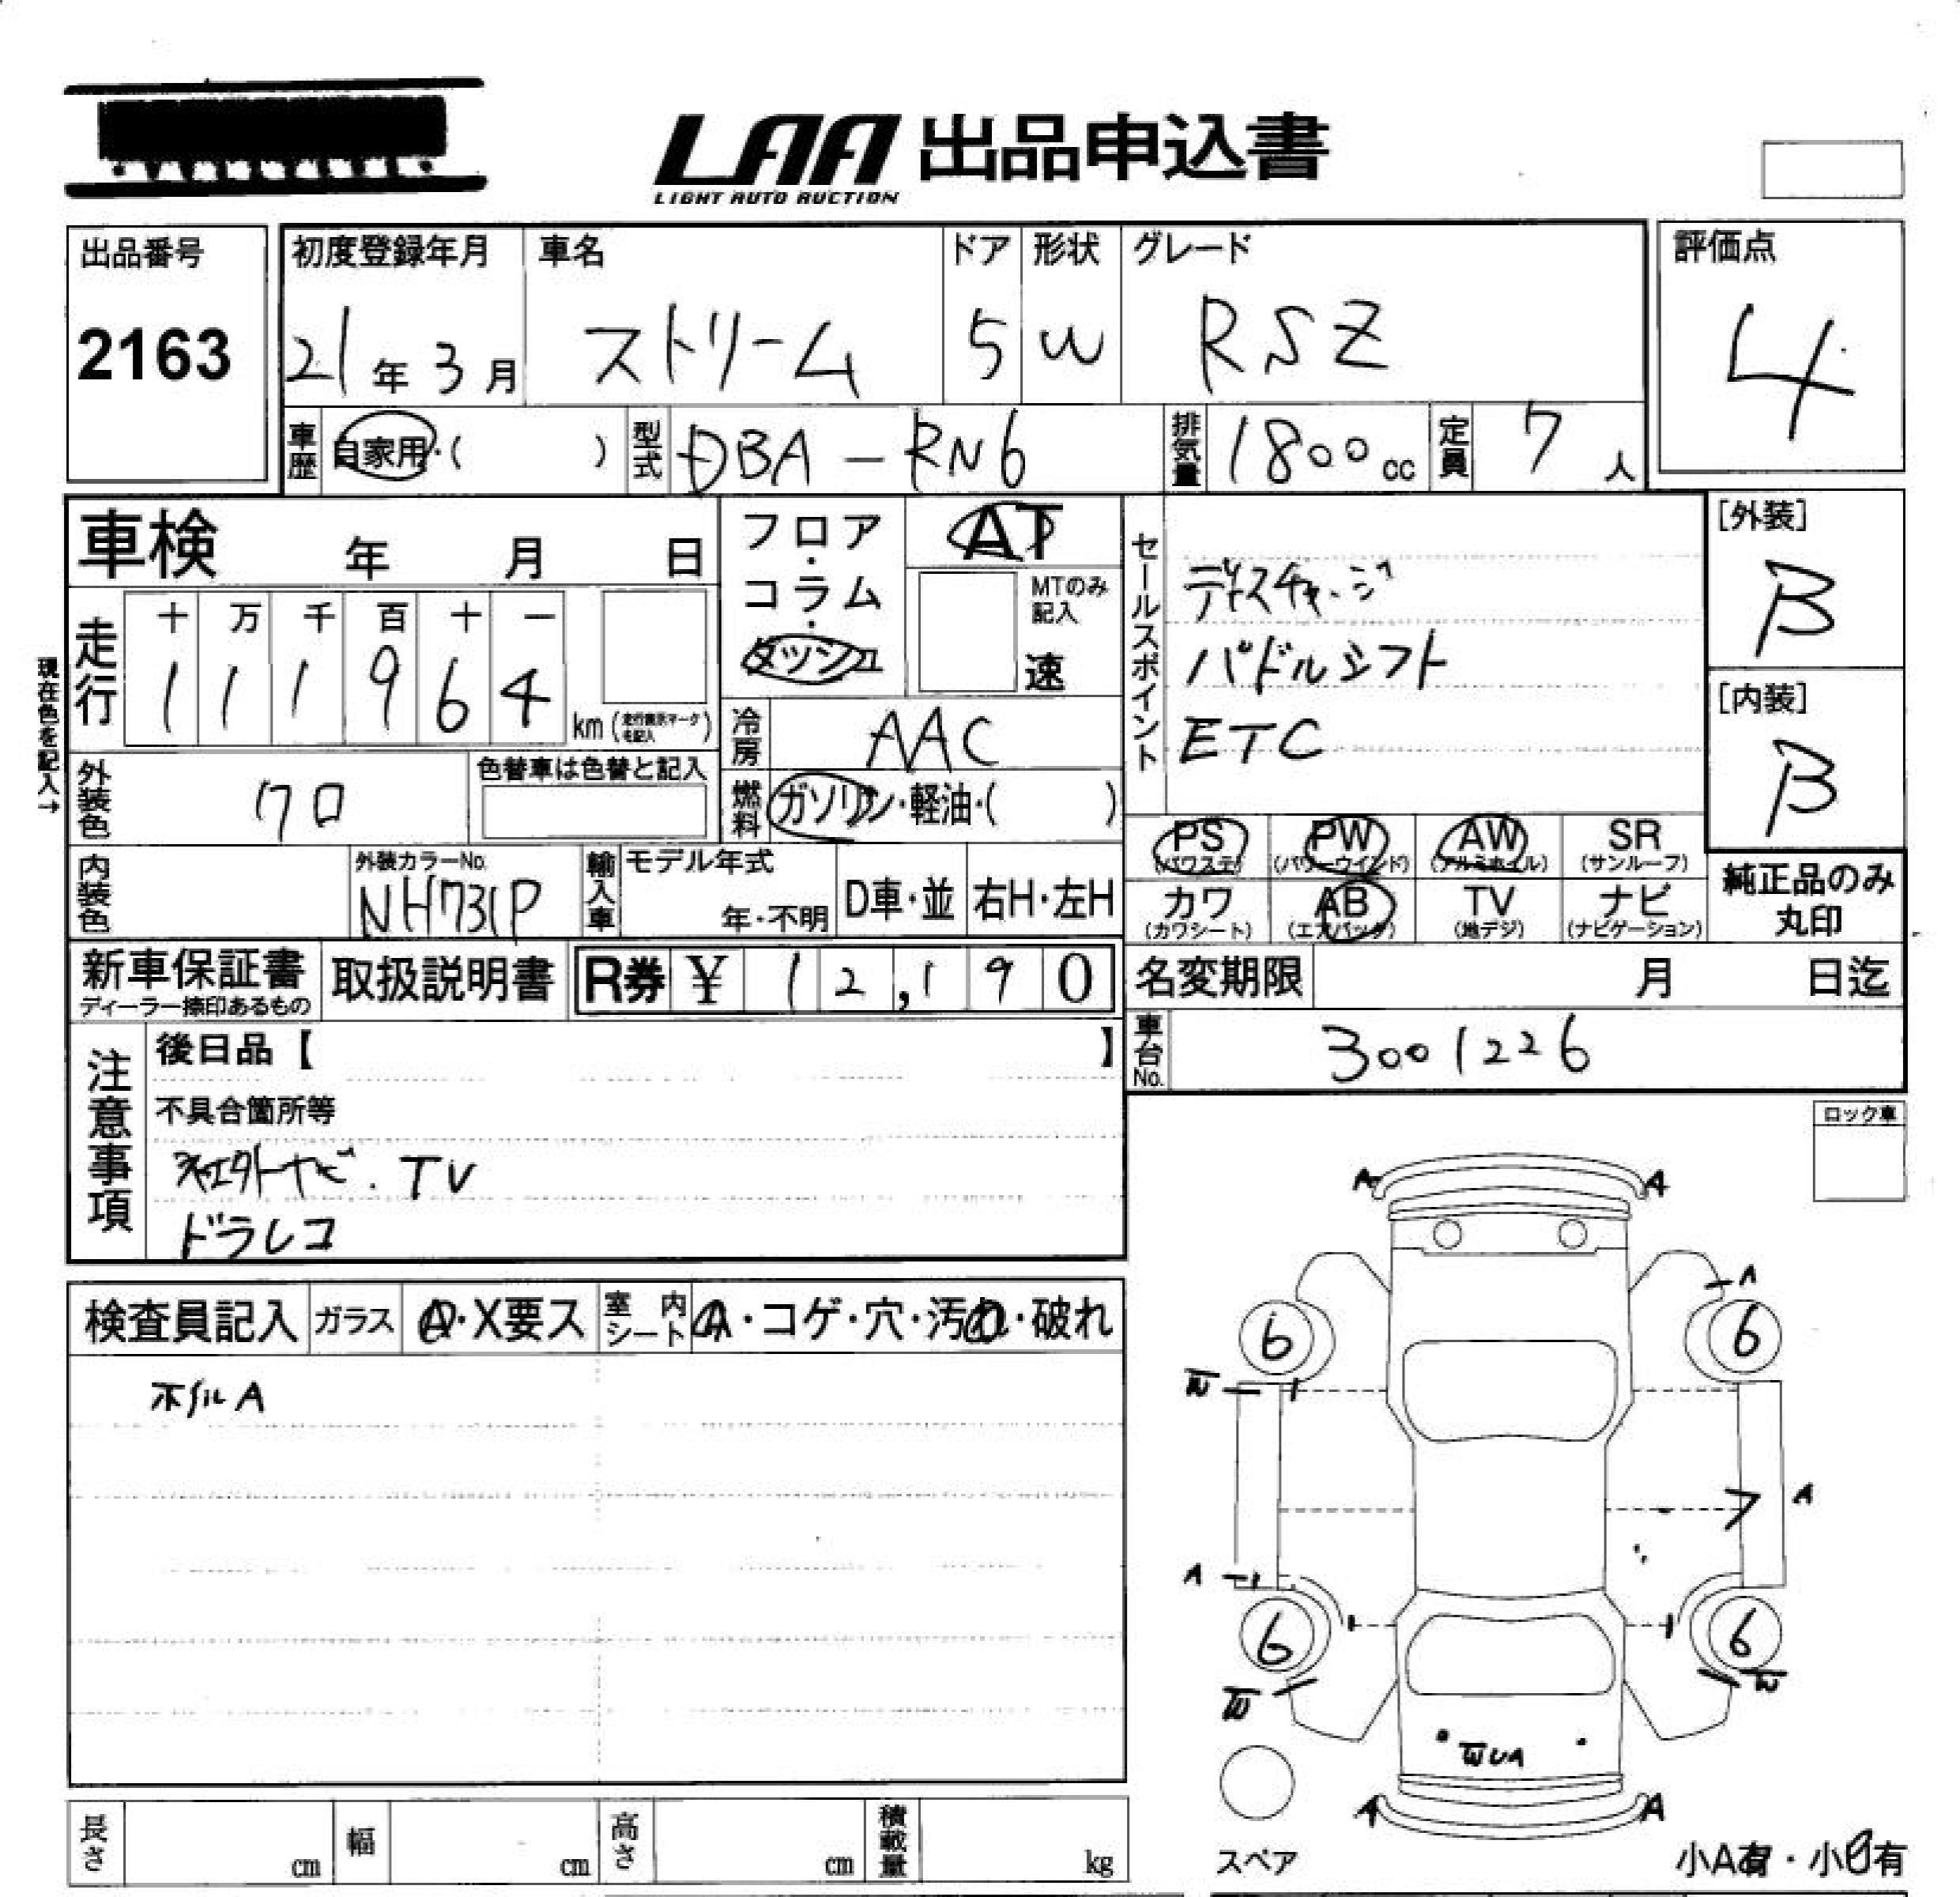 LAA 出品申込書
LIGHT AUTO AUCTION
出品番号
2163
初度登録年月
21年3月
車名
ストリーム
ドア
5
形状
W
グレード
RSZ
評価点
4
車歴
自家用・( )
型式
DBA-RN6
排気量
1800cc
定員
7人
車検 年 月 日
走行
十 万 千 百 十 一
1 1 1 9 6 4
km(走行表示マークを記入)
現在色を記入→
フロア・コラム・ダッシュ
AT
MTのみ記入
速
冷房
AAC
燃料
ガソリン・軽油・( )
外装色
クロ
色替車は色替と記入
内装色
外装カラーNo.
NH731P
輸入車
モデル年式
年・不明
D車・並
右H・左H
セールスポイント
ディスチャージ
パドルシフト
ETC
[外装]
B
[内装]
B
PS
(パワステ)
PW
(パワーウインド)
AW
(アルミホイル)
SR
(サンルーフ)
カワ
(カワシート)
AB
(エアバッグ)
TV
(地デジ)
ナビ
(ナビゲーション)
純正品のみ
丸印
新車保証書
ディーラー捺印あるもの
取扱説明書
R券 ¥ 12,190
名変期限 月 日迄
車台No.
3001226
注意事項
後日品【 】
不具合箇所等
社外ナビ.TV
ドラレコ
ロック車
検査員記入
ガラス
A・X要ス
室内シート
A・コゲ・穴・汚れ・破れ
ホイルA
A A
A
6 6
W
A
A
6 6
W W
WUA
A A
スペア
小A有・小U有
長さ cm
幅 cm
高さ cm
積載量 kg